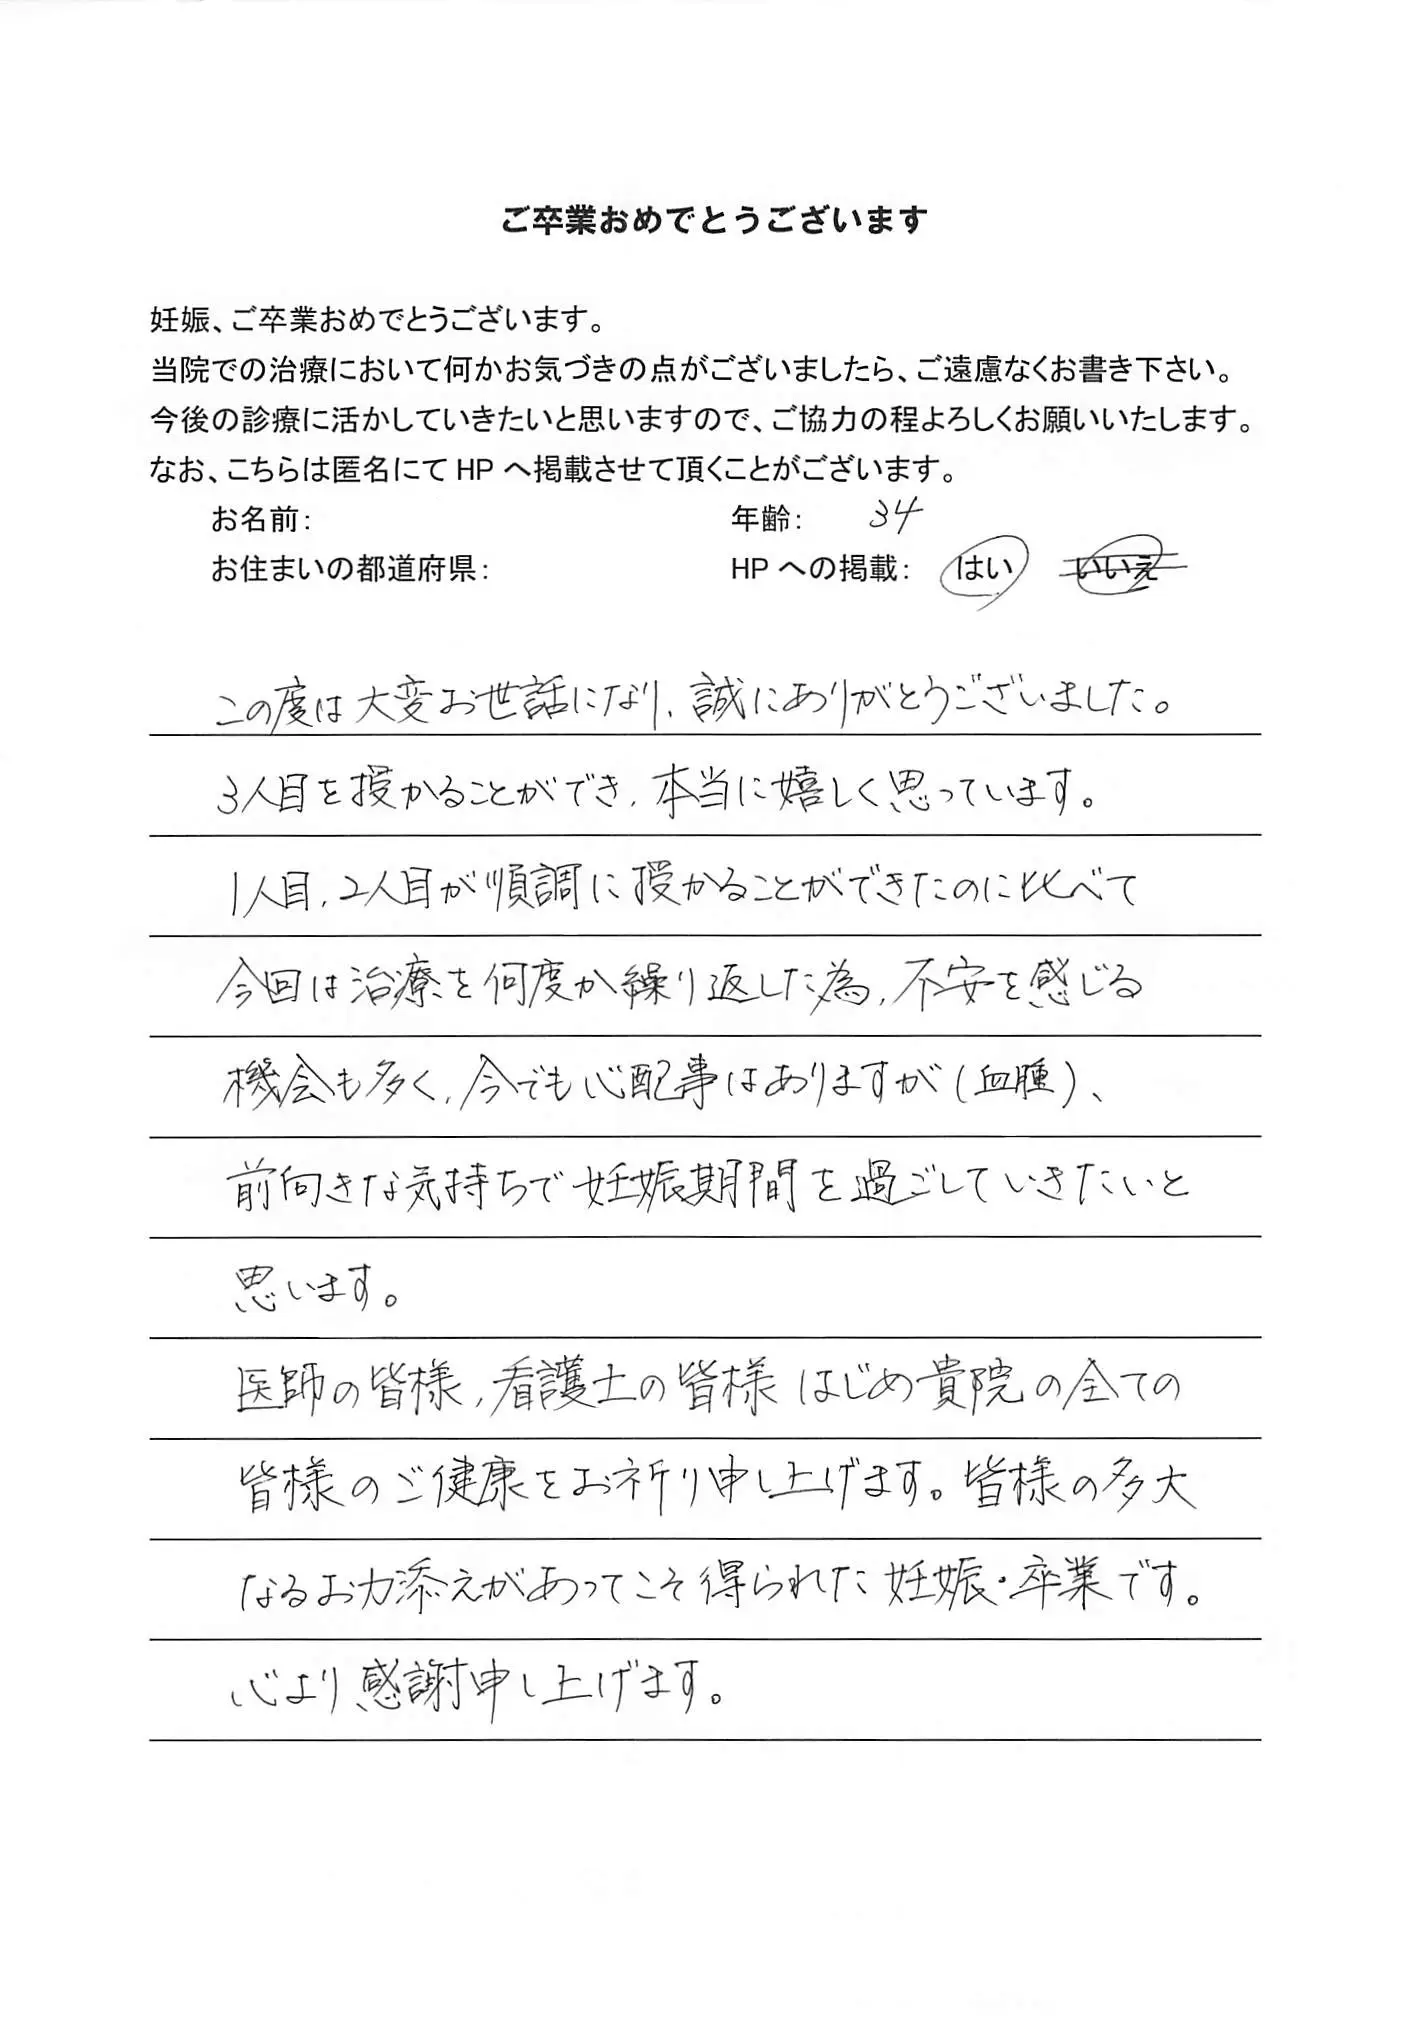 ご卒業おめでとうございます
妊娠、ご卒業おめでとうございます。
当院での治療において何かお気づきの点がございましたら、ご遠慮なくお書き下さい。
今後の診療に活かしていきたいと思いますので、ご協力の程よろしくお願いいたします。
なお、こちらは匿名にて HP へ掲載させて頂くことがございます。
お名前: 年齢: 34
お住まいの都道府県: HP への掲載: はい いいえ
この度は大変お世話になり、誠にありがとうございました。
3人目を授かることができ、本当に嬉しく思っています。
1人目、2人目が順調に授かることができたのに比べて
今回は治療を何度か繰り返した為、不安を感じる
機会も多く、今でも心配事はありますが(血腫)、
前向きな気持ちで妊娠期間を過ごしていきたいと
思います。
医師の皆様、看護士の皆様はじめ貴院の全ての
皆様のご健康をお祈り申し上げます。皆様の多大
なるお力添えがあってこそ得られた妊娠・卒業です。
心より感謝申し上げます。